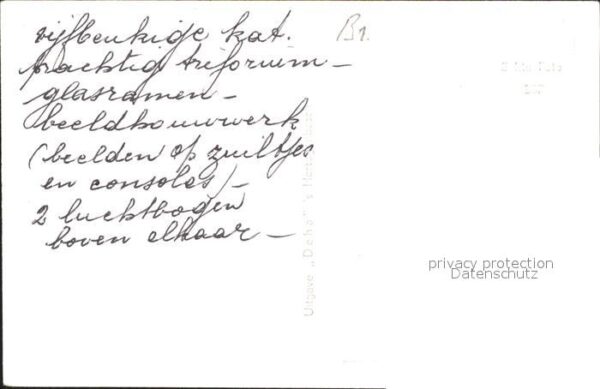 vijfbeukige kat.
prachtig triforium –
glasramen –
beeldhouwwerk
(beelden op zuiltjes
en consoles) –
2 luchtbogen
boven elkaar –
B1.
Uitgave „Deho"
privacy protection
Datenschutz